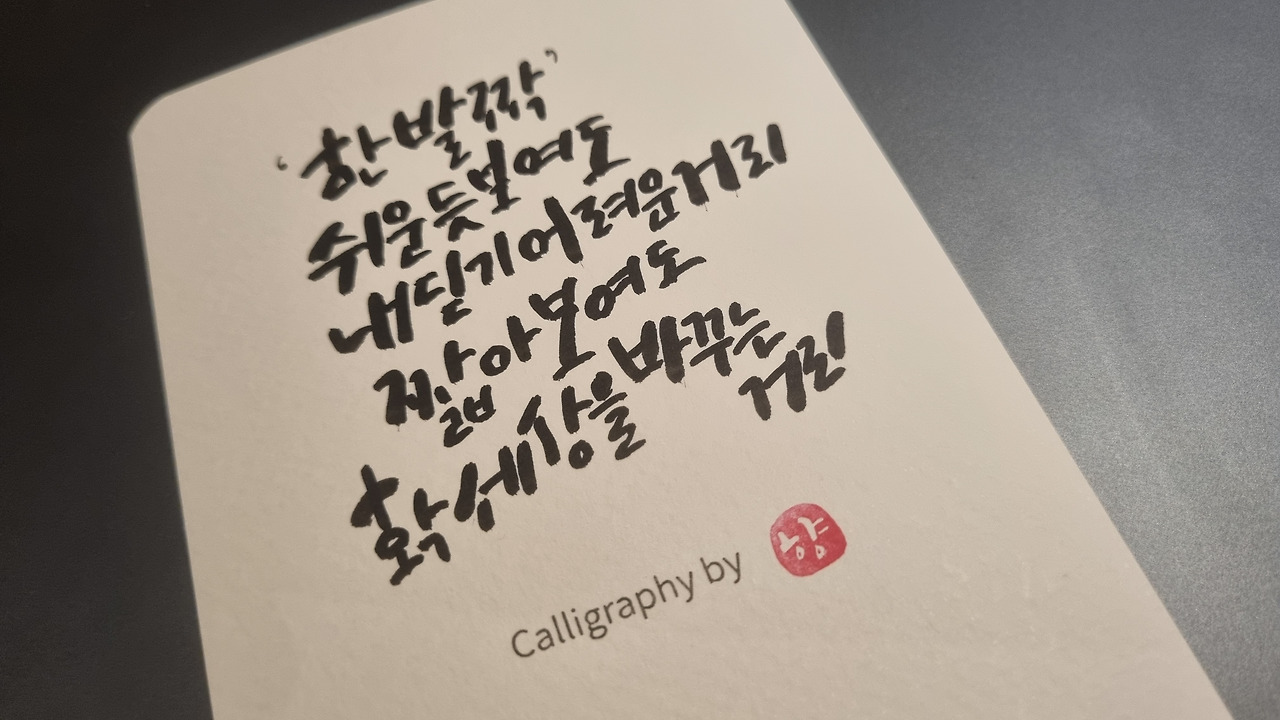 '한발짝'
쉬운듯보여도
내딛기어려운거리
짧아보여도
확세상을바꾸는
거리
Calligraphy by